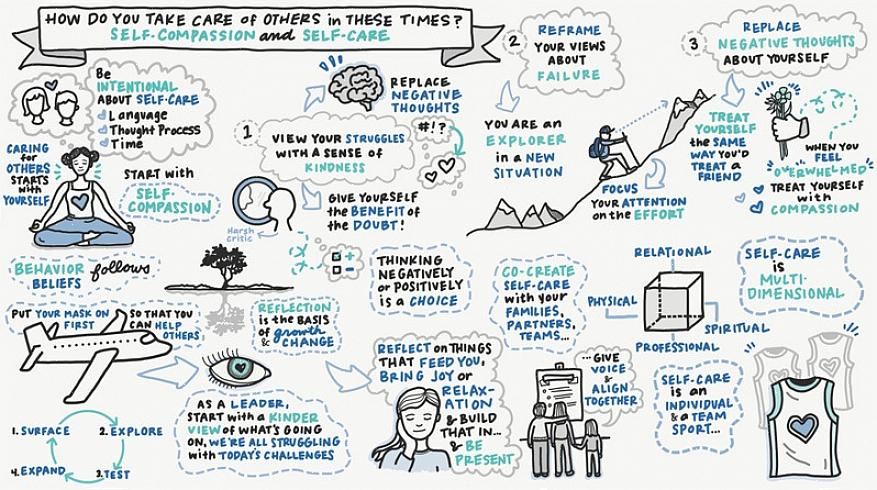 HOW DO YOU TAKE CARE of OTHERS in THESE TIMES?
SELF-COMPASSION and SELF-CARE
Be
INTENTIONAL
ABOUT SELF-CARE
Language
Thought Process
Time
CARING
for
OTHERS
STARTS
with
YOURSELF
START with
SELF-
COMPASSION
BEHAVIOR follows
BELIEFS
PUT YOUR MASK ON
FIRST
SO THAT YOU
CAN HELP
OTHERS
1. SURFACE
2. EXPLORE
3. TEST
4. EXPAND
1
VIEW YOUR STRUGGLES
WITH A SENSE of
KINDNESS
REPLACE
NEGATIVE
THOUGHTS
#!?
GIVE YOURSELF
the BENEFIT of
the DOUBT!
Harsh
critic
THINKING
NEGATIVELY
or POSITIVELY
is a CHOICE
REFLECTION
is the BASIS
of growth
& CHANGE
AS A LEADER,
START with a KINDER
VIEW of WHAT'S GOING
ON, WE'RE ALL STRUGGLING
with TODAY'S CHALLENGES
REFLECT on THINGS
THAT FEED YOU,
BRING JOY or
RELAX-
ATION
& BUILD
THAT IN...
& BE
PRESENT
2
REFRAME
YOUR VIEWS
ABOUT
FAILURE
YOU ARE an
EXPLORER
in a NEW
SITUATION
FOCUS
YOUR ATTENTION
on the EFFORT
3
REPLACE
NEGATIVE THOUGHTS
ABOUT YOURSELF
TREAT
YOURSELF
the SAME
WAY YOU'D
TREAT a
FRIEND
WHEN YOU
FEEL
OVERWHELMED
TREAT YOURSELF
with
COMPASSION
CO-CREATE
SELF-CARE
with your
FAMILIES,
PARTNERS,
TEAMS...
...GIVE
VOICE
& ALIGN
TOGETHER
RELATIONAL
PHYSICAL
SPIRITUAL
PROFESSIONAL
SELF-CARE
is
MULTI-
DIMENSIONAL
SELF-CARE
is an
INDIVIDUAL
& a TEAM
SPORT...